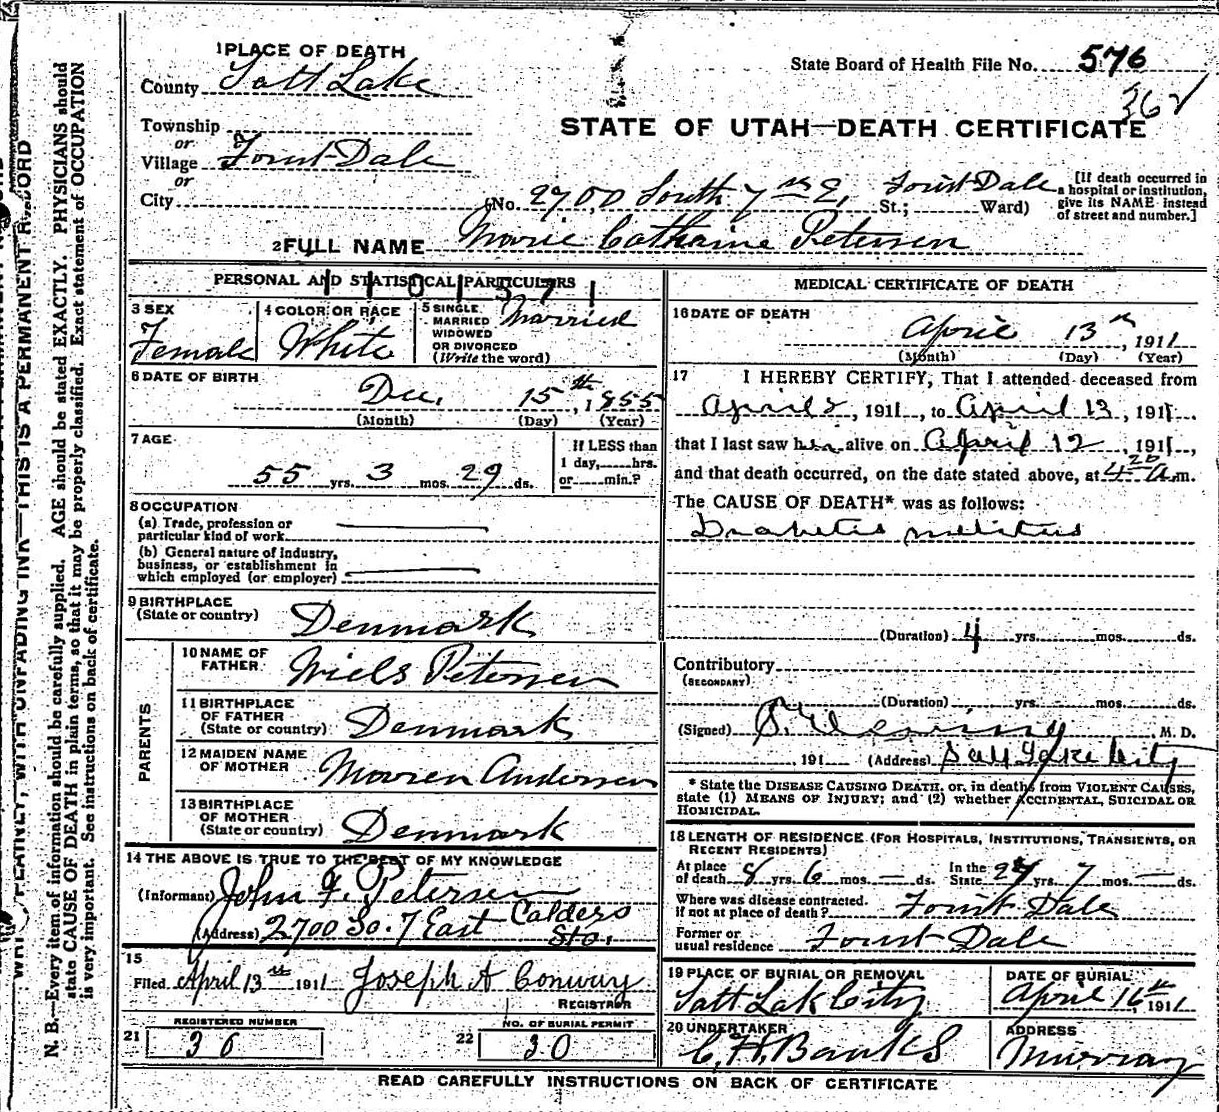 WRITE PLAINLY, WITH UNFADING INK—THIS IS A PERMANENT RECORD
N. B.—Every item of information should be carefully supplied. AGE should be stated EXACTLY. PHYSICIANS should
state CAUSE OF DEATH in plain terms, so that it may be properly classified. Exact statement of OCCUPATION
is very important. See instructions on back of certificate.
1 PLACE OF DEATH
County Salt Lake
State Board of Health File No. 576
362
STATE OF UTAH—DEATH CERTIFICATE
Township
or
Village Forest Dale
or
City
(No. 2700 South 7th E, St.; Forest Dale Ward)
[If death occurred in
a hospital or institution,
give its NAME instead
of street and number.]
2 FULL NAME Marie Cathrine Petersen
PERSONAL AND STATISTICAL PARTICULARS
3 SEX
Female
4 COLOR OR RACE
White
5 SINGLE
MARRIED
WIDOWED
OR DIVORCED
(Write the word)
Married
6 DATE OF BIRTH
Dec. 15th, 1855
(Month) (Day) (Year)
7 AGE
55 yrs. 3 mos. 29 ds.
If LESS than
1 day, hrs.
or min.?
8 OCCUPATION
(a) Trade, profession or
particular kind of work
(b) General nature of Industry,
business, or establishment in
which employed (or employer)
9 BIRTHPLACE
(State or country)
Denmark
PARENTS
10 NAME OF
FATHER
Niels Petersen
11 BIRTHPLACE
OF FATHER
(State or country)
Denmark
12 MAIDEN NAME
OF MOTHER
Maren Andersen
13 BIRTHPLACE
OF MOTHER
(State or country)
Denmark
14 THE ABOVE IS TRUE TO THE BEST OF MY KNOWLEDGE
(Informant) John F. Petersen
(Address) 2700 So. 7 East Calders
Sta.
15
Filed April 13th 1911 Joseph A Conway
REGISTRAR
REGISTERED NUMBER
21 36
NO. OF BURIAL PERMIT
22 30
MEDICAL CERTIFICATE OF DEATH
16 DATE OF DEATH
April 13th, 1911
(Month) (Day) (Year)
17 I HEREBY CERTIFY, That I attended deceased from
April 2, 1911, to April 13, 1911.
that I last saw her alive on April 12, 1911,
and that death occurred, on the date stated above, at 4 20 A m.
The CAUSE OF DEATH* was as follows:
Diabetis melitus
(Duration) 4 yrs. mos. ds.
Contributory
(SECONDARY)
(Duration) yrs. mos. ds.
(Signed) M. D.
, 191 (Address) Salt Lake City
* State the DISEASE CAUSING DEATH, or, in deaths from VIOLENT CAUSES,
state (1) MEANS OF INJURY; and (2) whether ACCIDENTAL, SUICIDAL OR
HOMICIDAL.
18 LENGTH OF RESIDENCE (FOR HOSPITALS, INSTITUTIONS, TRANSIENTS, OR
RECENT RESIDENTS)
At place
of death 8 yrs. 6 mos. — ds.
In the
State yrs. 7 mos. — ds.
Where was disease contracted.
if not at place of death? Forest Dale
Former or
usual residence Forest Dale
19 PLACE OF BURIAL OR REMOVAL
Salt Lake City
DATE OF BURIAL
April 16th 1911
20 UNDERTAKER
C. H. Banks
ADDRESS
Murray
READ CAREFULLY INSTRUCTIONS ON BACK OF CERTIFICATE